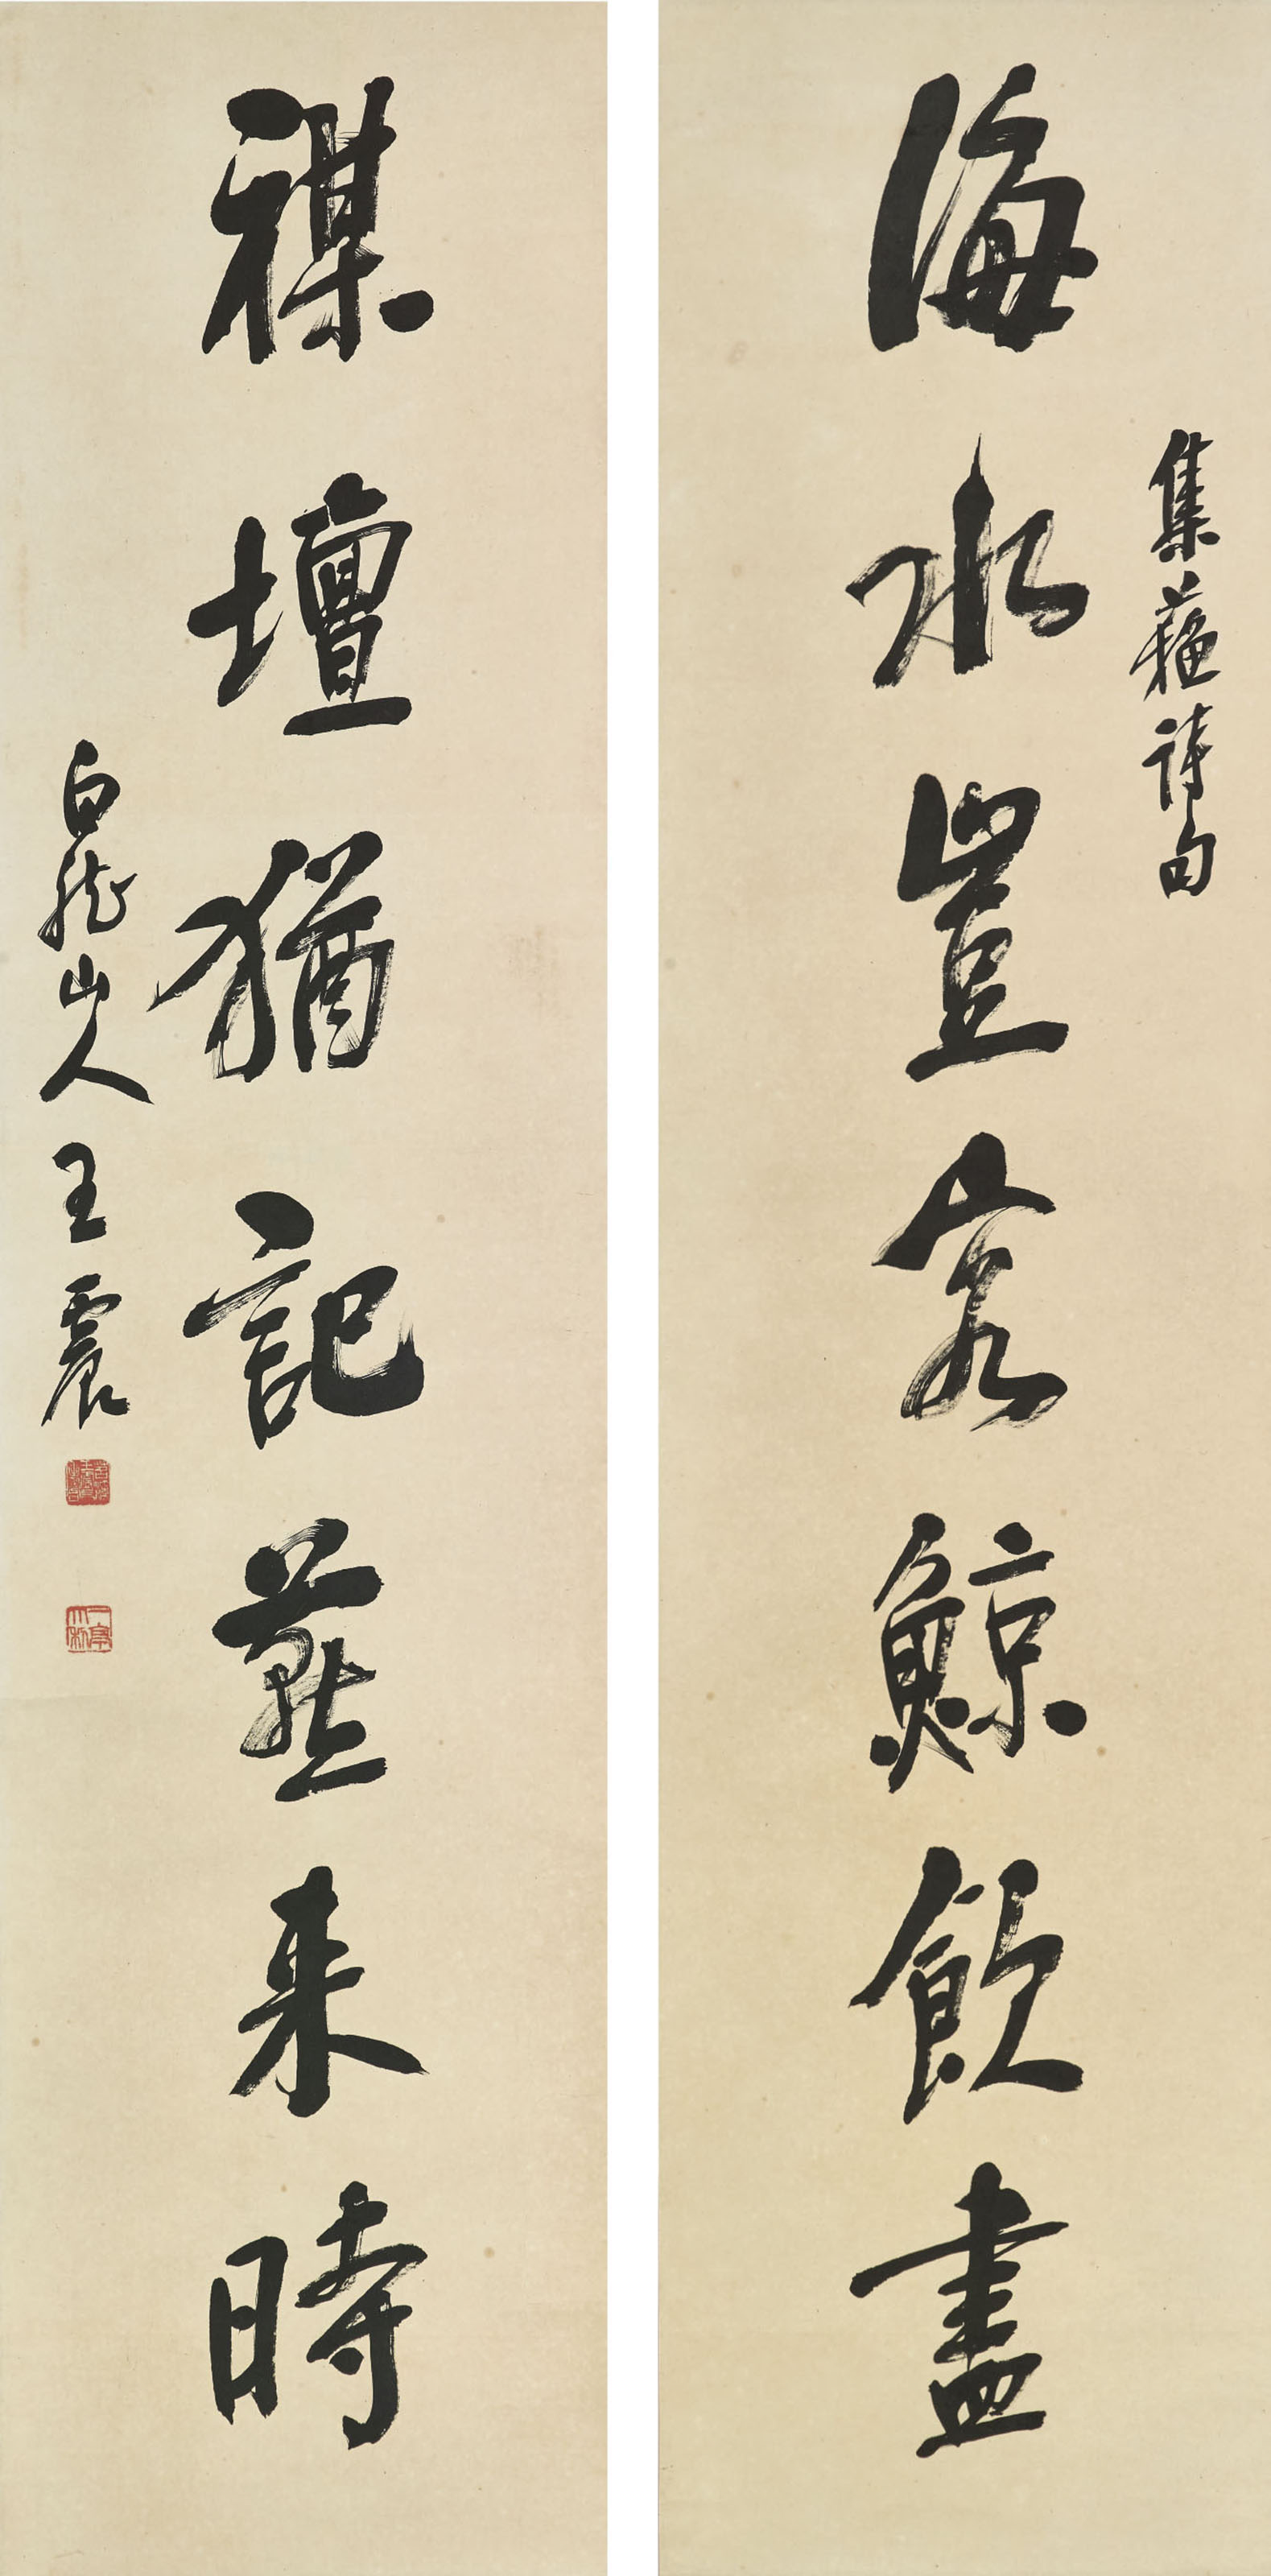 集蘇詩句
海水豈容鯨飲盡
禖壇猶記燕來時
白龍山人王震